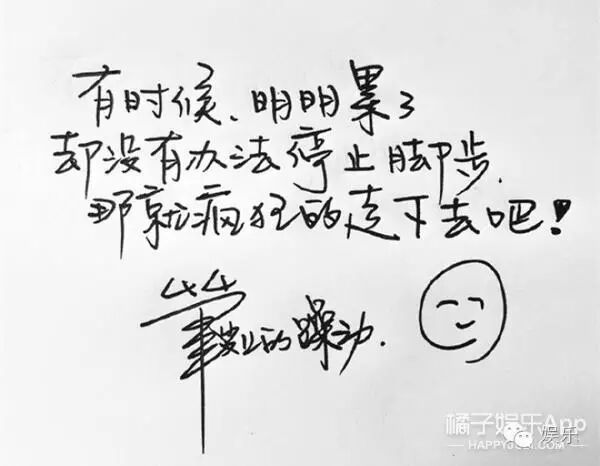 有时候、明明累了
却没有办法停止脚步.
那就疯狂的走下去吧!
的躁动.
橘子娱乐App
娱乐